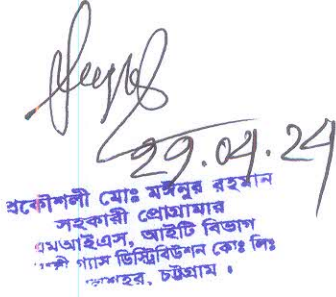 29.04.24
প্রকৌশলী মোঃ মঈনুর রহমান
সহকারী প্রোগ্রামার
এমআইএস, আইটি বিভাগ
গ্যাস ডিস্ট্রিবিউশন কোং লিঃ
চট্টগ্রাম ।